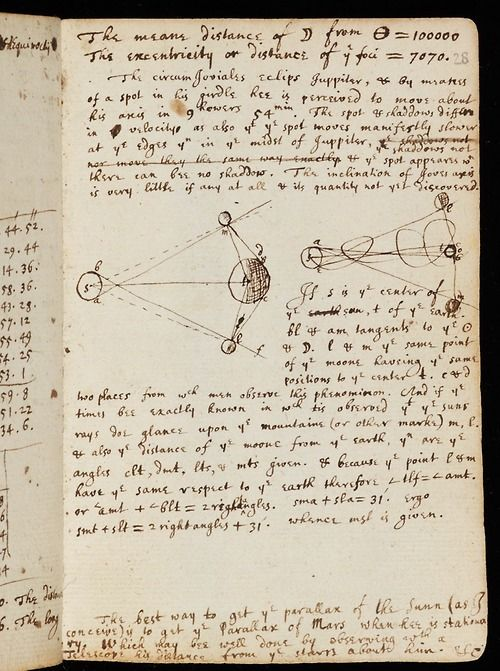 The meane distance of ☽ from ⊖ = 100000
The excentricity or distance of yᵉ foci = 7070. 28
The circumJoviales eclips Juppiter, & By meanes
of a spot in his girdle hee is perceived to move about
his axis in 9 howers 54 min. The spot & shaddows differ
in velocitye as also yᵉ yᵉ spot moves manifestly slower
at yᵉ edges yⁿ in yᵉ midst of Juppiter, yᵉ shaddows not
nor move they the same way exactly & yᵉ spot appears wⁿ
there can bee no shaddow. The inclination of Joves axis
is very little if any at all & its quantity not yet discovered.
44.52.
29.44
14.36.
58.36.
43.28.
57.12
55.49
54.25
53.1
59.8
51.22
34.6.
b
s
a
m
d
l
f
a
s
If s is yᵉ center of
yᵉ earth sun, t of yᵉ earth.
bl & am tangents to yᵉ ⊙
& ☽. l & m yᵉ same point
of yᵉ moone haveing yᵉ same
positions to yᵉ center t. c & d
two places from wᶜʰ men observe this phenominon. And if yᵉ
times bee exactly known in wᶜʰ tis observed yᵗ yᵉ suns
rays doe glance upon yᵉ mountaine (or other marke) m, l.
& also yᵉ distance of yᵉ moone from yᵉ earth, yⁿ are yᵉ
angles clt, dmt, lts, & mts given. & because yᵉ point l & m
have yᵉ same respect to yᵉ earth therefore ∠tlf = ∠amt.
or ∠amt + ∠blt = 2 right angles. sma + sla = 31. Ergo
smt + slt = 2 right angles + 31. whence msl is given.
The best way to get yᵉ parallax of the Sunn (as I
conceive) is to get yᵉ Parallax of Mars when hee is stationa
ry. Which may bee well done by observing with a
Telescope his distance from yᵉ starrs about him.
0. The
6. The long